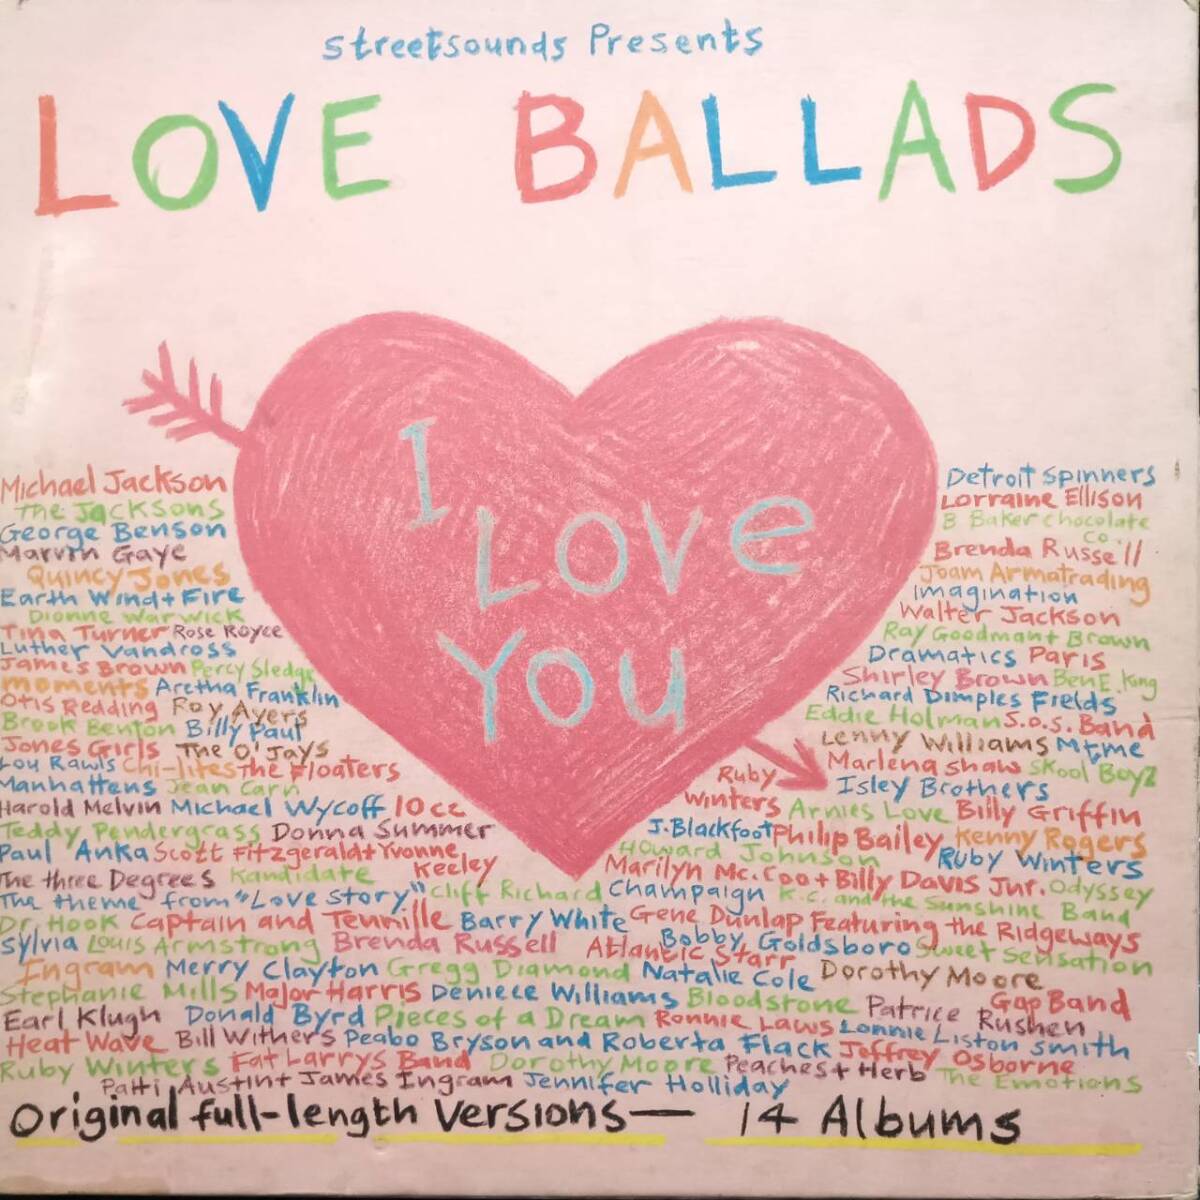 streetsounds Presents
LOVE BALLADS
I
LOVe
You
Michael Jackson
The Jacksons
George Benson
Marvin Gaye
Quincy Jones
Earth Wind + Fire
Dionne Warwick
Tina Turner Rose Royce
Luther Vandross
James Brown Percy Sledge
moments Aretha Franklin
Otis Redding Roy Ayers
Brook Benton Billy Paul
Jones Girls The O'Jays
Lou Rawls Chi-lites The Floaters
Manhattens Jean Carn
Harold Melvin Michael Wycoff 10cc
Teddy Pendergrass Donna Summer
Paul Anka Scott Fitzgerald + Yvonne
Keeley
The three Degrees Kandidate
Detroit Spinners
Lorraine Ellison
B Baker Chocolate
Co.
Brenda Russell
Joam Armatrading
Imagination
Walter Jackson
Ray Goodman + Brown
Dramatics Paris
Shirley Brown Ben E. King
Richard Dimples Fields
Eddie Holman S.O.S. Band
Lenny Williams Mtme
Marlena Shaw Skool Boyz
Isley Brothers
Ruby
Winters Arnies Love Billy Griffin
J. Blackfoot Philip Bailey Kenny Rogers
Howard Johnson Ruby Winters
Marilyn Mc.Coo + Billy Davis Jnr. Odyssey
The theme from "Love Story" Cliff Richard Champaign K.C. and the Sunshine Band
Dr Hook Captain and Tennille Barry White Gene Dunlap Featuring the Ridgeways
Sylvia Louis Armstrong Brenda Russell Atlantic Starr Bobby Goldsboro Sweet Sensation
Ingram Merry Clayton Gregg Diamond Natalie Cole Dorothy Moore
Stephanie Mills Major Harris Deniece Williams Bloodstone Patrice Rushen Gap Band
Earl Klugh Donald Byrd Pieces of a Dream Ronnie Laws Lonnie Liston Smith
Heat Wave Bill Withers Peabo Bryson and Roberta Flack Jeffrey Osborne
Ruby Winters Fat Larrys Band Dorothy Moore Peaches + Herb The Emotions
Patti Austin + James Ingram Jennifer Holliday
Original full-length Versions — 14 Albums